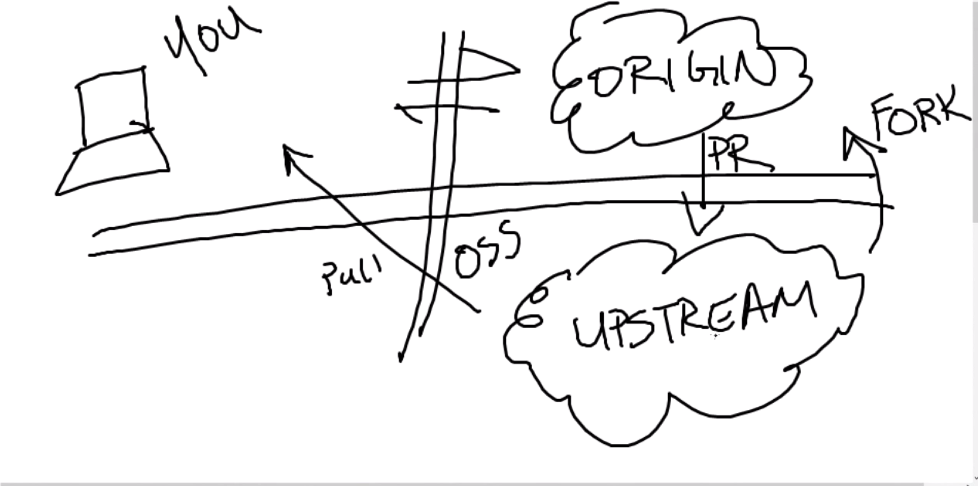 YOU
ORIGIN
FORK
PR
OSS
Pull
UPSTREAM